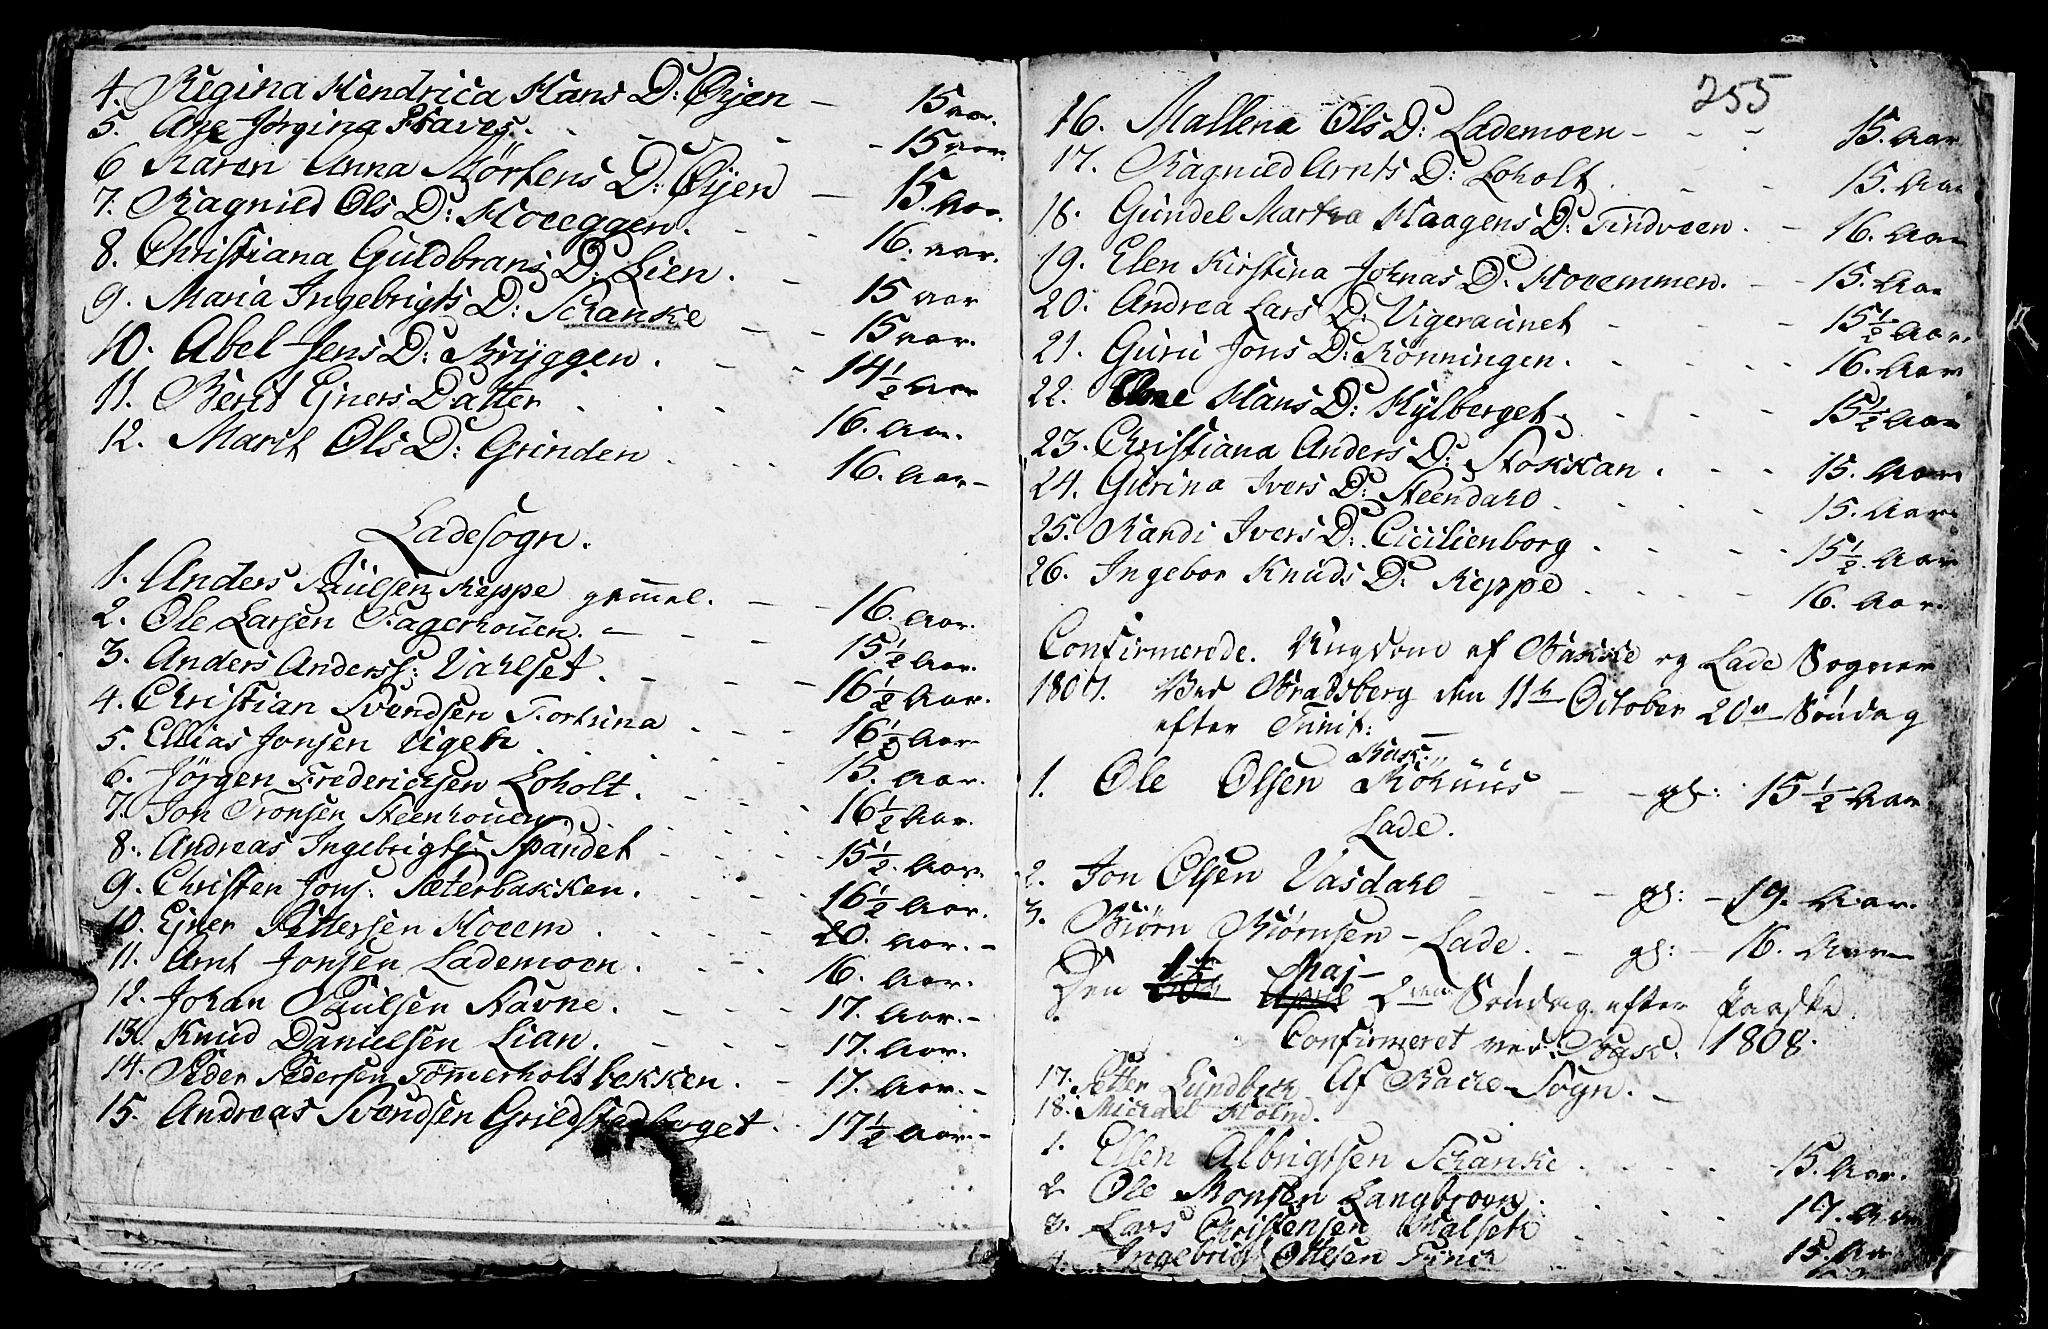 4. Regina Hendrica Hans D: Øyen – 15 aar.
5. Ane Jørgina Haves. - 15 aar.
6 Karen Anna Mørtens D: Øyen – 15. Aar.
7. Ragnild Ols D: Hoeggen. 16. aar.
8. Christiana Guldbrans D: Lien. 15 aar
9. Maria Ingebrigts D: Schanke 15 aar.
10. Abel Jens D: Bryggen. 14½ Aar
11. Berit Ejners Datter 16. Aar.
12. Marit Ols D: Grinden 16. Aar –
Ladesogn.
1. Anders Paulsen Reppe gammel. – 16. aar.
2. Ole Larsen Fagerhouen. – 15½ Aar.
3. Anders Anderss: Valset. 16½ Aar.
4. Christian Svendsen Fortuna 16½ Aar
5. Ellias Jonsen Ugeh 15. Aar.
6. Jørgen Fredericksen Loholt. 16½ Aar.
7. Jon Tronsen Steenhouen. 15½. Aar.
8. Andreas Ingebrigts: Spandet 16½ Aar.
9. Christen Jons: Sæterbakken. 20. Aar. –
10. Ejner Pettersen Hoeem 16. Aar.
11. Arnt Jonsen Lademoen. 17. Aar. –
12. Johan Paulsen Stavne. 17. Aar.
13. Knud Danielsen Lian. 17. Aar. –
14. Peder Pedersen Tømmerholtbakken. 17½ Aar. –
15. Andreas Svendsen Grildstadberget.
255
16. Mallena Ols D: Lademoen – 15. Aar
17. Ragnild Arnts D: Loholt. 15. Aar
18. Gundel Martha Haagens D: Tindveen. – 16. Aar
19. Elen Kirstina Johnas D: Hoeemmen. – 15. Aar
20. Andrea Lars D: Vigeraunet 15½ Aar.
21. Guru Jons D: Rønningen. 16. Aar
22. Hans D: Kylberget. 15½ Aar
23. Christiana Anders D: Stokkan. 15. Aar
24. Gurina Ivers D: Steendahl 15. Aar.
25. Randi Ivers D: Cicilienborg. 15½. Aar
26. Ingebor Knuds D. Reppe 16. Aar.
Confirmerede. Ungdom af Bakke og Lade Sogner
1807. Ved Bradsberg den 11te October 20de Søndag
efter Trinit:
Bak:
1. Ole Olsen Rohuus – gl: 15½ Aar
Lade.
2. Jon Olsen Vasdahl – gl: – 19. Aar.
3. Biørn Biørnsen – Lade. – gl: – 16. Aar
1te Maj –
Den April 2den Søndag efter Paaske.
Confirmeret ved Bak: 1808.
17. Petter Lundbeck Af Bakke Sogn. –
18. Michael Holm.
1. Ellen Albrigtsen Schanke. 15. Aar.
2 Ole Monsen Langbroen. 17. Aar
3. Lars Christensen Qualseth 15. Aa
4. Ingebrigt Ottesen Tunck